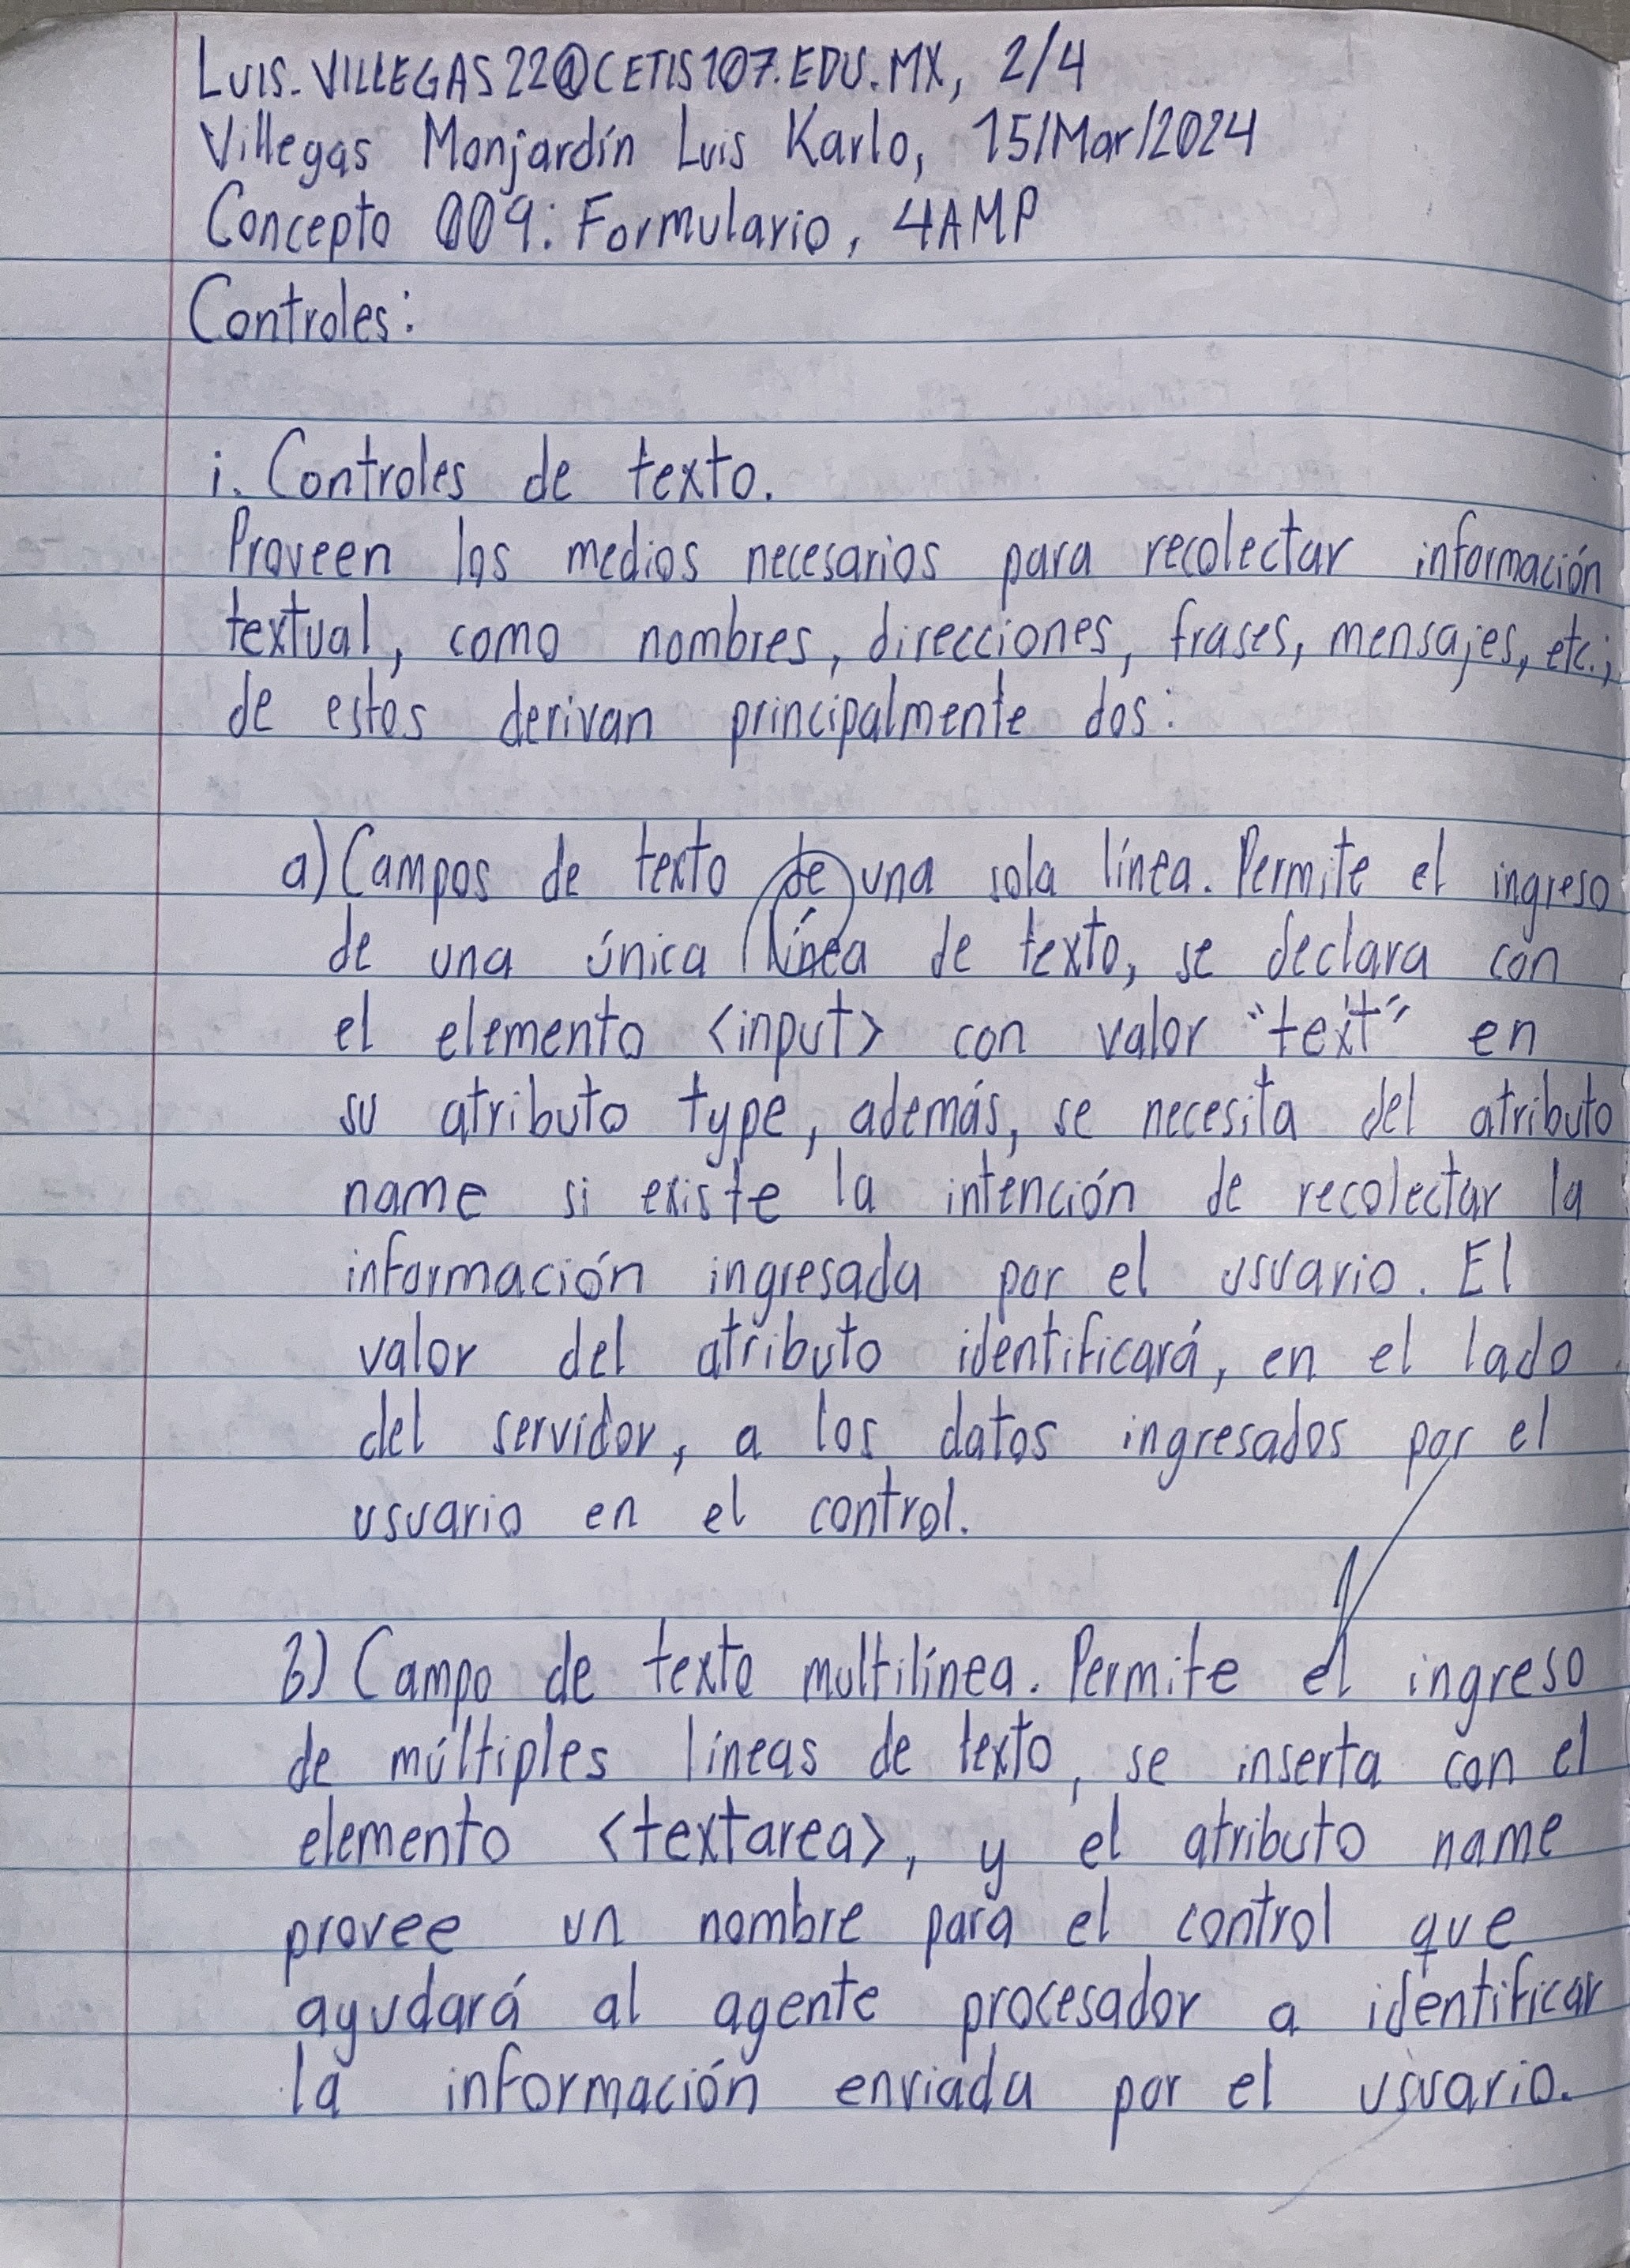 LUIS.VILLEGAS22@CETIS107.EDU.MX, 2/4
Villegas Monjardín Luis Karlo, 15/Mar/2024
Concepto 009: Formulario, 4AMP
Controles:
i. Controles de texto.
Proveen los medios necesarios para recolectar información
textual, como nombres, direcciones, frases, mensajes, etc.;
de estos derivan principalmente dos:
a) Campos de texto de una sola línea. Permite el ingreso
de una única línea de texto, se declara con
el elemento <input> con valor "text" en
su atributo type, además, se necesita del atributo
name si existe la intención de recolectar la
información ingresada por el usuario. El
valor del atributo identificará, en el lado
del servidor, a los datos ingresados por el
usuario en el control.
b) Campo de texto multilínea. Permite el ingreso
de múltiples líneas de texto, se inserta con el
elemento <textarea>, y el atributo name
provee un nombre para el control que
ayudará al agente procesador a identificar
la información enviada por el usuario.